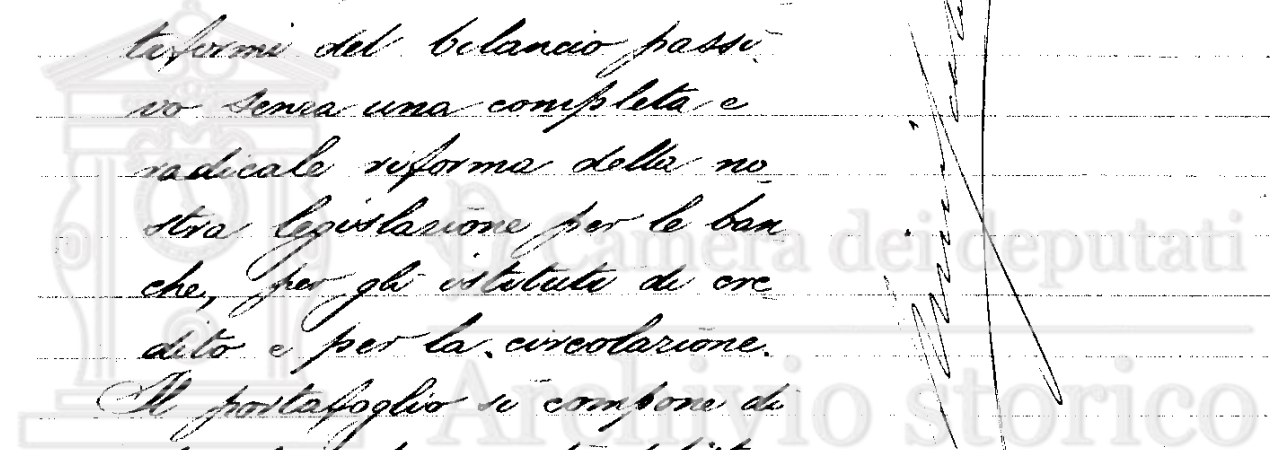 teformi del bilancio passi-
vo senza una completa e
radicale riforma della no-
stra legislazione per le ban-
che, per gli istituti di cre-
dito e per la circolazione.
Il portafoglio si compone di
Camera dei deputati
Archivio storico